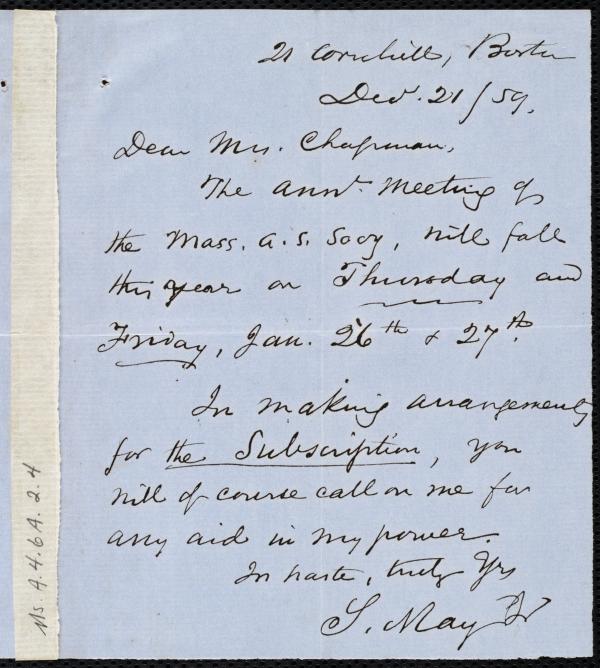 21 Cornhill, Boston
Decr. 21/59.
Dear Mrs. Chapman,
The annl. Meeting of
the Mass. A. S. Socy, will fall
this year on Thursday and
Friday, Jan. 26th & 27th.
In making arrangements
for the Subscription, you
will of course call on me for
any aid in my power.
In haste, truly Yrs
S. May Jr
Ms. A. 4. 6A. 2. 4